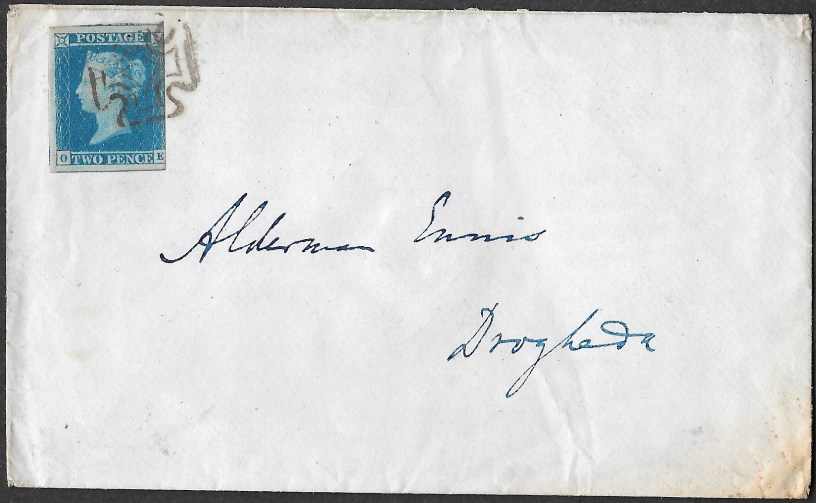 POSTAGE
O TWO PENCE E
Alderman Ennis
Drogheda